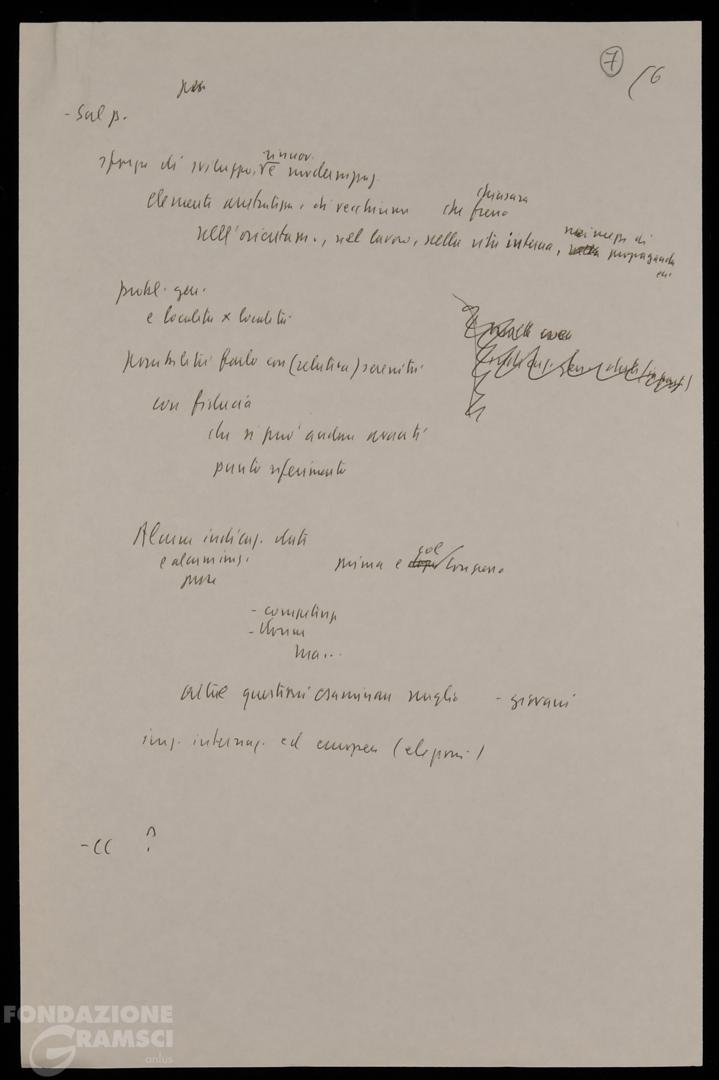 7
/6
- Sul p.
sforzo di sviluppo, rinnov. e modernizzaz.
elementi di vecchiume che frena
chiusura
nell'orientam., nel lavoro, nella vita interna, nei mezzi di propaganda
ecc.
probl. gen.
e località x località
possibilità farlo con (relativa) serenità
con fiducia
che si può andare avanti
punto riferimento
Alcune indicaz. date
e alcun
prima e col Congresso
- competenz
- donne
ma...
altre questioni esaminare meglio - giovani
imp. internaz. ed europeo (elezioni)
- CC ?
FONDAZIONE
GRAMSCI
onlus